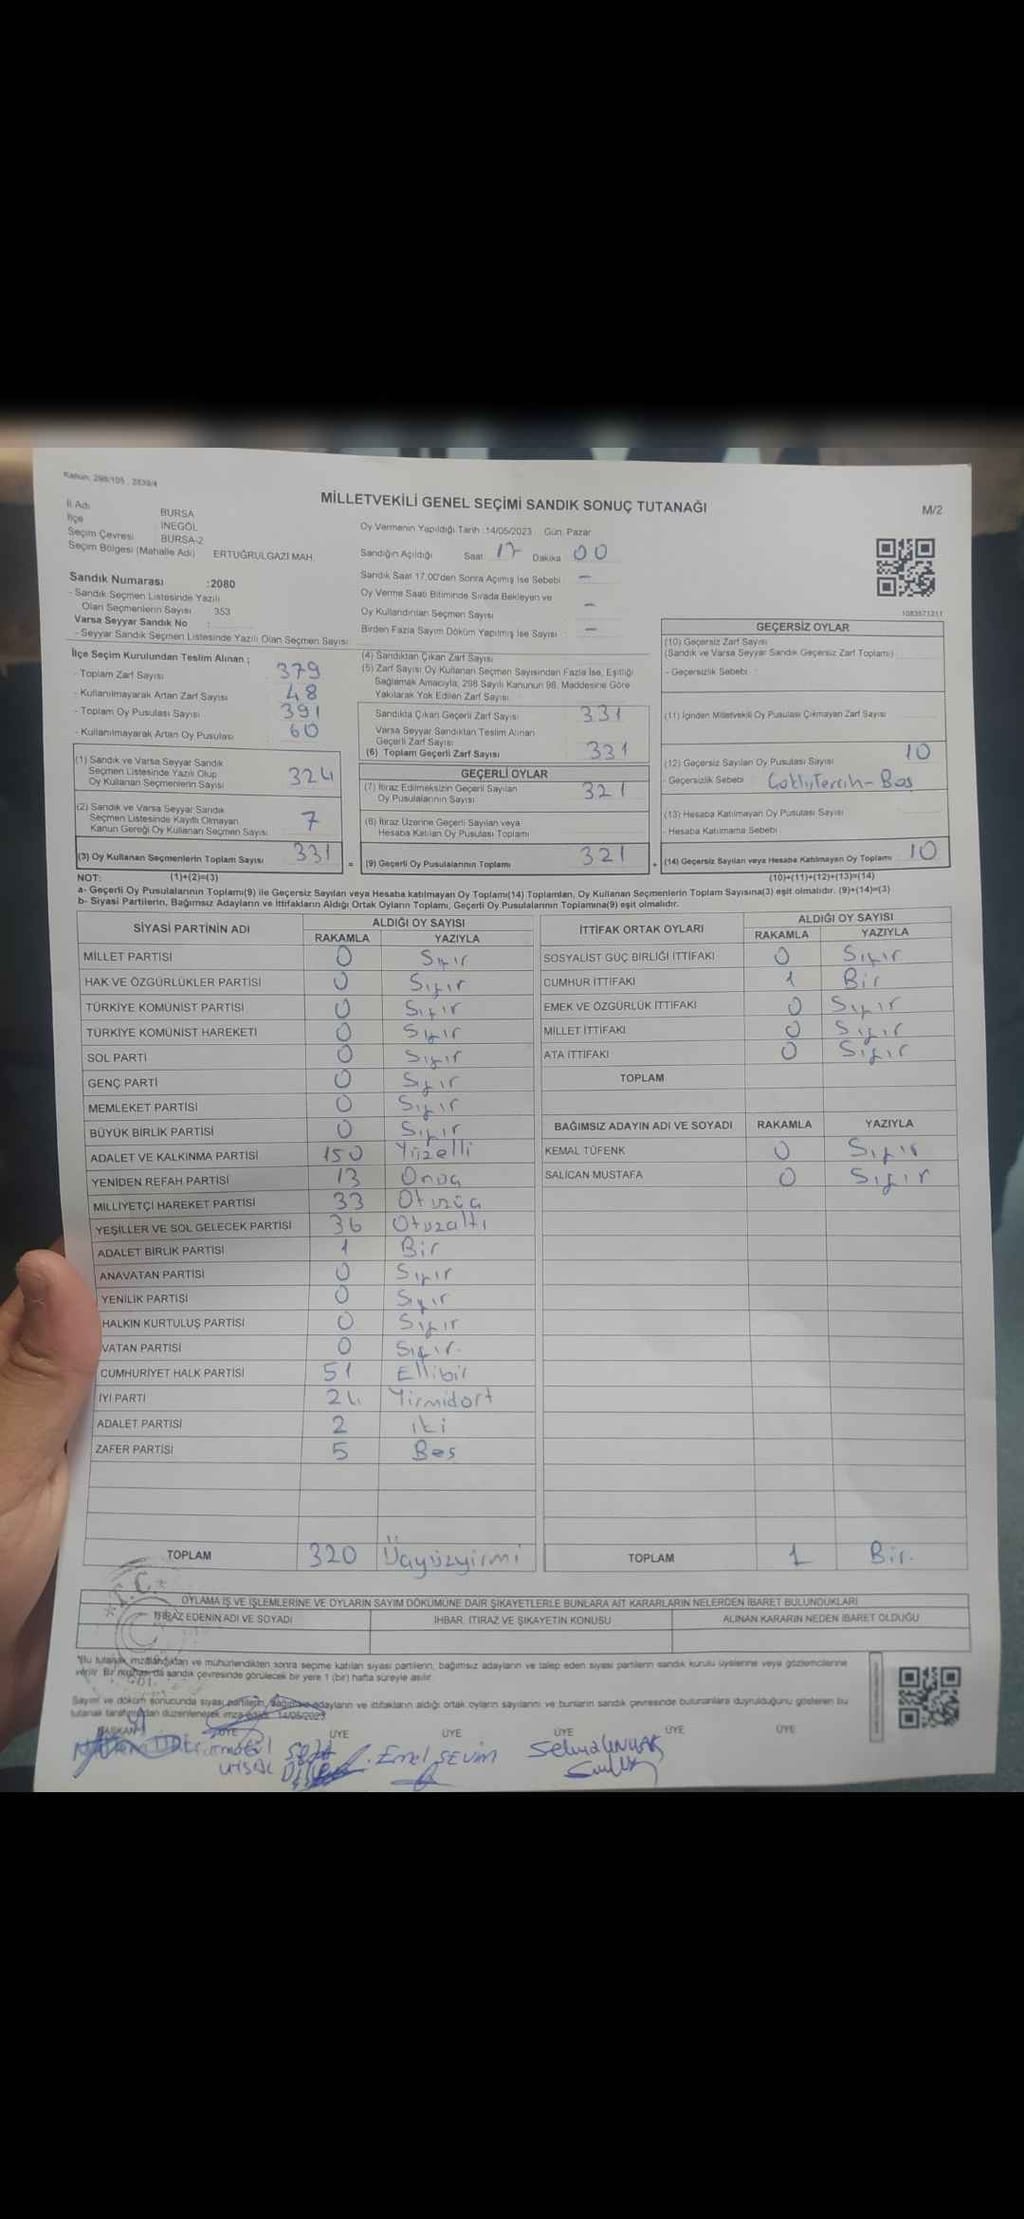 Kanun: 298/105 , 2839/4
MİLLETVEKİLİ GENEL SEÇİMİ SANDIK SONUÇ TUTANAĞI
M/2
İl Adı BURSA
İlçe İNEGÖL
Seçim Çevresi BURSA-2
Seçim Bölgesi (Mahalle Adı) ERTUĞRULGAZİ MAH.
Oy Vermenin Yapıldığı Tarih :14/05/2023 Gün: Pazar
Sandığın Açıldığı Saat 17 Dakika 00
Sandık Saat 17.00'den Sonra Açılmış İse Sebebi –
Oy Verme Saati Bitiminde Sırada Bekleyen ve
Oy Kullandırılan Seçmen Sayısı –
Birden Fazla Sayım Döküm Yapılmış İse Sayısı –
1083571211
Sandık Numarası :2080
- Sandık Seçmen Listesinde Yazılı
Olan Seçmenlerin Sayısı 353
Varsa Seyyar Sandık No :
- Seyyar Sandık Seçmen Listesinde Yazılı Olan Seçmen Sayısı:
İlçe Seçim Kurulundan Teslim Alınan ;
- Toplam Zarf Sayısı 379
- Kullanılmayarak Artan Zarf Sayısı 48
- Toplam Oy Pusulası Sayısı 391
- Kullanılmayarak Artan Oy Pusulası 60
(1) Sandık ve Varsa Seyyar Sandık
Seçmen Listesinde Yazılı Olup
Oy Kullanan Seçmenlerin Sayısı 324
(2) Sandık ve Varsa Seyyar Sandık
Seçmen Listesinde Kayıtlı Olmayan
Kanun Gereği Oy Kullanan Seçmen Sayısı 7
(3) Oy Kullanan Seçmenlerin Toplam Sayısı 331 =
(4) Sandıktan Çıkan Zarf Sayısı
(5) Zarf Sayısı Oy Kullanan Seçmen Sayısından Fazla İse, Eşitliği
Sağlamak Amacıyla, 298 Sayılı Kanunun 98. Maddesine Göre
Yakılarak Yok Edilen Zarf Sayısı
Sandıkta Çıkan Geçerli Zarf Sayısı 331
Varsa Seyyar Sandıktan Teslim Alınan
Geçerli Zarf Sayısı
(6) Toplam Geçerli Zarf Sayısı 331
GEÇERLİ OYLAR
(7) İtiraz Edilmeksizin Geçerli Sayılan
Oy Pusulalarının Sayısı 321
(8) İtiraz Üzerine Geçerli Sayılan veya
Hesaba Katılan Oy Pusulası Toplamı
(9) Geçerli Oy Pusulalarının Toplamı 321 +
GEÇERSİZ OYLAR
(10) Geçersiz Zarf Sayısı
(Sandık ve Varsa Seyyar Sandık Geçersiz Zarf Toplamı)
- Geçersizlik Sebebi :
(11) İçinden Milletvekili Oy Pusulası Çıkmayan Zarf Sayısı
(12) Geçersiz Sayılan Oy Pusulası Sayısı 10
- Geçersizlik Sebebi
(13) Hesaba Katılmayan Oy Pusulası Sayısı
- Hesaba Katılmama Sebebi
(14) Geçersiz Sayılan veya Hesaba Katılmayan Oy Toplamı 10
NOT: (1)+(2)=(3) (10)+(11)+(12)+(13)=(14)
a- Geçerli Oy Pusulalarının Toplamı(9) ile Geçersiz Sayılan veya Hesaba katılmayan Oy Toplamı(14) Toplamları, Oy Kullanan Seçmenlerin Toplam Sayısına(3) eşit olmalıdır. (9)+(14)=(3)
b- Siyasi Partilerin, Bağımsız Adayların ve İttifakların Aldığı Ortak Oyların Toplamı, Geçerli Oy Pusulalarının Toplamına(9) eşit olmalıdır.
SİYASİ PARTİNİN ADI ALDIĞI OY SAYISI
RAKAMLA YAZIYLA
MİLLET PARTİSİ 0 Sıfır
HAK VE ÖZGÜRLÜKLER PARTİSİ 0 Sıfır
TÜRKİYE KOMÜNİST PARTİSİ 0 Sıfır
TÜRKİYE KOMÜNİST HAREKETİ 0 Sıfır
SOL PARTİ 0 Sıfır
GENÇ PARTİ 0 Sıfır
MEMLEKET PARTİSİ 0 Sıfır
BÜYÜK BİRLİK PARTİSİ 0 Sıfır
ADALET VE KALKINMA PARTİSİ 150 Yüzelli
YENİDEN REFAH PARTİSİ 13 Onüç
MİLLİYETÇİ HAREKET PARTİSİ 33 Otuzüç
YEŞİLLER VE SOL GELECEK PARTİSİ 36 Otuzaltı
ADALET BİRLİK PARTİSİ 1 Bir
ANAVATAN PARTİSİ 0 Sıfır
YENİLİK PARTİSİ 0 Sıfır
HALKIN KURTULUŞ PARTİSİ 0 Sıfır
VATAN PARTİSİ 0 Sıfır.
CUMHURİYET HALK PARTİSİ 51 Ellibir
İYİ PARTİ 24 Yirmidört
ADALET PARTİSİ 2 iki
ZAFER PARTİSİ 5 Beş
TOPLAM 320 Üçyüzyirmi
İTTİFAK ORTAK OYLARI ALDIĞI OY SAYISI
RAKAMLA YAZIYLA
SOSYALİST GÜÇ BİRLİĞİ İTTİFAKI 0 Sıfır
CUMHUR İTTİFAKI 1 Bir
EMEK VE ÖZGÜRLÜK İTTİFAKI 0 Sıfır
MİLLET İTTİFAKI 0 Sıfır
ATA İTTİFAKI 0 Sıfır
TOPLAM
BAĞIMSIZ ADAYIN ADI VE SOYADI RAKAMLA YAZIYLA
KEMAL TÜFENK 0 Sıfır
SALİCAN MUSTAFA 0 Sıfır
TOPLAM 1 Bir.
OYLAMA İŞ VE İŞLEMLERİNE VE OYLARIN SAYIM DÖKÜMÜNE DAİR ŞİKAYETLERLE BUNLARA AİT KARARLARIN NELERDEN İBARET BULUNDUKLARI
İTİRAZ EDENİN ADI VE SOYADI İHBAR, İTİRAZ VE ŞİKAYETİN KONUSU ALINAN KARARIN NEDEN İBARET OLDUĞU
T.C.
*Bu tutanak imzalandıktan ve mühürlendikten sonra seçime katılan siyasi partilerin, bağımsız adayların ve talep eden siyasi partilerin sandık kurulu üyelerine veya gözlemcilerine
verilir. Bir nüshası da sandık çevresinde görülecek bir yere 1 (bir) hafta süreyle asılır.
Sayım ve döküm sonucunda siyasi partilerin, bağımsız adayların ve ittifakların aldığı ortak oyların sayılarını ve bunların sandık çevresinde bulunanlara duyrulduğunu gösteren bu
tutanak tarafımızdan düzenlenerek imza edildi. 14/05/2023
BAŞKAN ÜYE ÜYE ÜYE ÜYE ÜYE ÜYE
Emel SEVİM